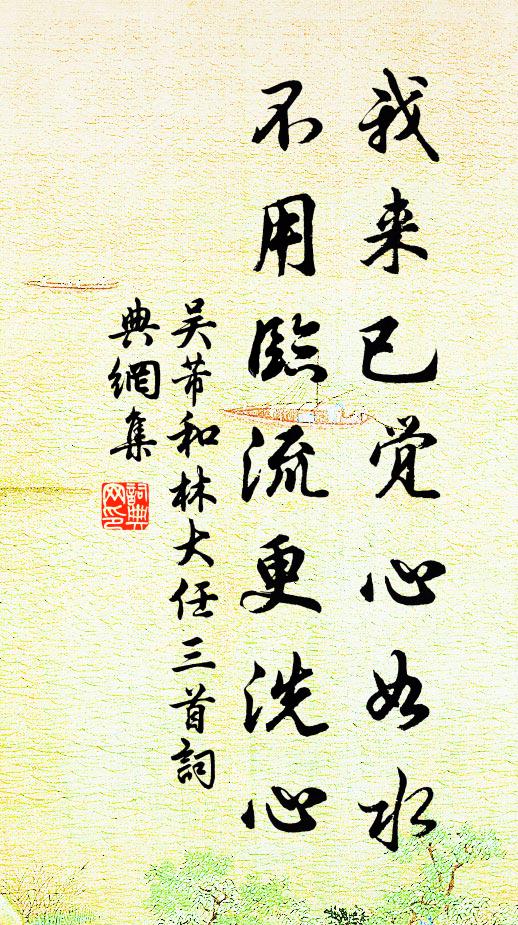 我来已觉心如水
不用臨流更洗心
吴芾和林大任三首詞
典網集
詞典
网印